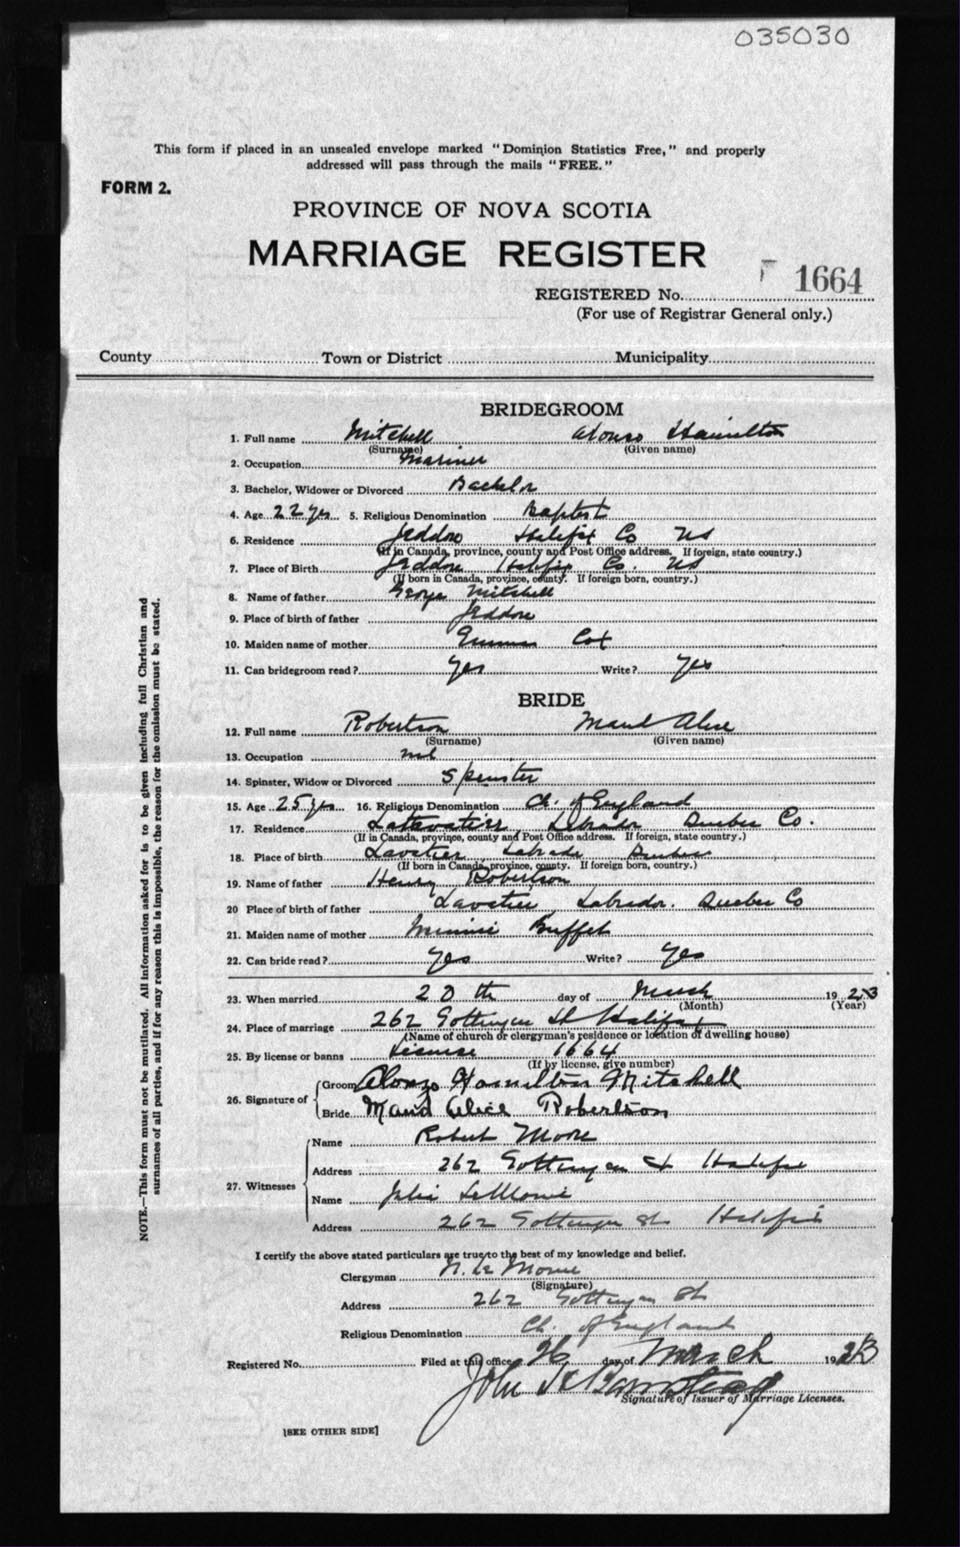 035030
This form if placed in an unsealed envelope marked "Dominion Statistics Free," and properly
addressed will pass through the mails "FREE."
FORM 2.
PROVINCE OF NOVA SCOTIA
MARRIAGE REGISTER
REGISTERED No. 1664
(For use of Registrar General only.)
County Town or District Municipality
BRIDEGROOM
1. Full name Mitchell Alonzo Hamilton
(Surname) (Given name)
2. Occupation Mariner
3. Bachelor, Widower or Divorced Bachelor
4. Age 22 yrs 5. Religious Denomination Baptist
6. Residence Jeddore Halifax Co NS
(If in Canada, province, county and Post Office address. If foreign, state country.)
7. Place of Birth Jeddore Halifax Co. NS
(If born in Canada, province, county. If foreign born, country.)
8. Name of father George Mitchell
9. Place of birth of father Jeddore
10. Maiden name of mother Cox
11. Can bridegroom read? Yes Write? Yes
BRIDE
12. Full name Robertson Maud Alice
(Surname) (Given name)
13. Occupation
14. Spinster, Widow or Divorced Spinster
15. Age 25 yrs 16. Religious Denomination Ch. of England
17. Residence Quebec Co.
(If in Canada, province, county and Post Office address. If foreign, state country.)
18. Place of birth Quebec
(If born in Canada, province, county. If foreign born, country.)
19. Name of father Henry Robertson
20 Place of birth of father Labrador. Quebec Co
21. Maiden name of mother Minnie Buffet
22. Can bride read? Yes Write? Yes
23. When married 20th day of March 1923
(Month) (Year)
24. Place of marriage 262 Gottingen St Halifax
(Name of church or clergyman's residence or location of dwelling house)
25. By license or banns License 1664
(If by license, give number)
26. Signature of
Groom Alonzo Hamilton Mitchell
Bride Maud Alice Robertson
27. Witnesses
Name Robert Moore
Address 262 Gottingen St Halifax
Name
Address 262 Gottingen St. Halifax
I certify the above stated particulars are true to the best of my knowledge and belief.
Clergyman
(Signature)
Address 262 Gottingen St
Religious Denomination Ch. of England
Registered No. Filed at this office 26 day of March 1923
John
Signature of Issuer of Marriage Licenses.
[SEE OTHER SIDE]
NOTE.—This form must not be mutilated. All information asked for is to be given including full Christian and
surnames of all parties, and if for any reason this is impossible, the reason for the omission must be stated.